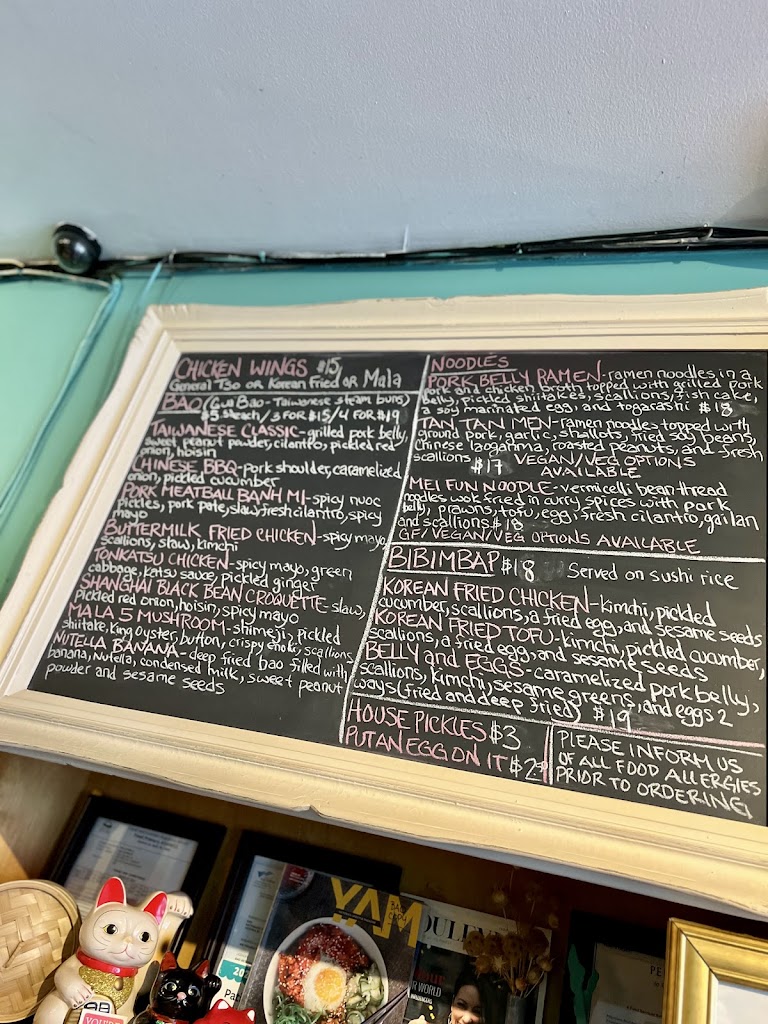 CHICKEN WINGS $15
General Tso or Korean Fried or Mala
BAO (Gua Bao - Taiwanese steam buns)
$5 each / 3 FOR $15 / 4 FOR $19
TAIWANESE CLASSIC - grilled pork belly,
sweet peanut powder, cilantro, pickled red
onion, hoisin
CHINESE BBQ - pork shoulder, caramelized
onion, pickled cucumber
PORK MEATBALL BANH MI - spicy nuoc
pickles, pork pate, slaw, fresh cilantro, spicy
mayo
BUTTERMILK FRIED CHICKEN - spicy mayo,
scallions, slaw, kimchi
TONKATSU CHICKEN - spicy mayo, green
cabbage, katsu sauce, pickled ginger
SHANGHAI BLACK BEAN CROQUETTE - slaw,
pickled red onion, hoisin, spicy mayo
MALA 5 MUSHROOM - shimeji, pickled
shiitake, king oyster, button, crispy enoki, scallions
NUTELLA BANANA - deep fried bao filled with
banana, Nutella, condensed milk, sweet peanut
powder and sesame seeds
NOODLES
PORK BELLY RAMEN - ramen noodles in a
pork and chicken broth topped with grilled pork
belly, pickled shiitakes, scallions, fish cake,
a soy marinated egg, and togarashi $18
TAN TAN MEN - ramen noodles, topped with
ground pork, garlic, shallots, fried soy beans,
Chinese laoganma, roasted peanuts, and fresh
scallions $17 VEGAN/VEG OPTIONS
AVAILABLE
MEI FUN NOODLE - vermicelli bean thread
noodles wok fried in curry spices with pork
belly, prawns, tofu, egg, fresh cilantro, gai lan
and scallions $18
GF/VEGAN/VEG OPTIONS AVAILABLE
BIBIMBAP $18 Served on sushi rice
KOREAN FRIED CHICKEN - kimchi, pickled
cucumber, scallions, a fried egg, and sesame seeds
KOREAN FRIED TOFU - kimchi, pickled cucumber,
scallions, a fried egg, and sesame seeds
BELLY and EGGS - caramelized pork belly,
scallions, kimchi, sesame greens, and eggs 2
ways (fried and deep fried) $19
HOUSE PICKLES $3
PUT AN EGG ON IT $2
PLEASE INFORM US
OF ALL FOOD ALLERGIES
PRIOR TO ORDERING!
YAM